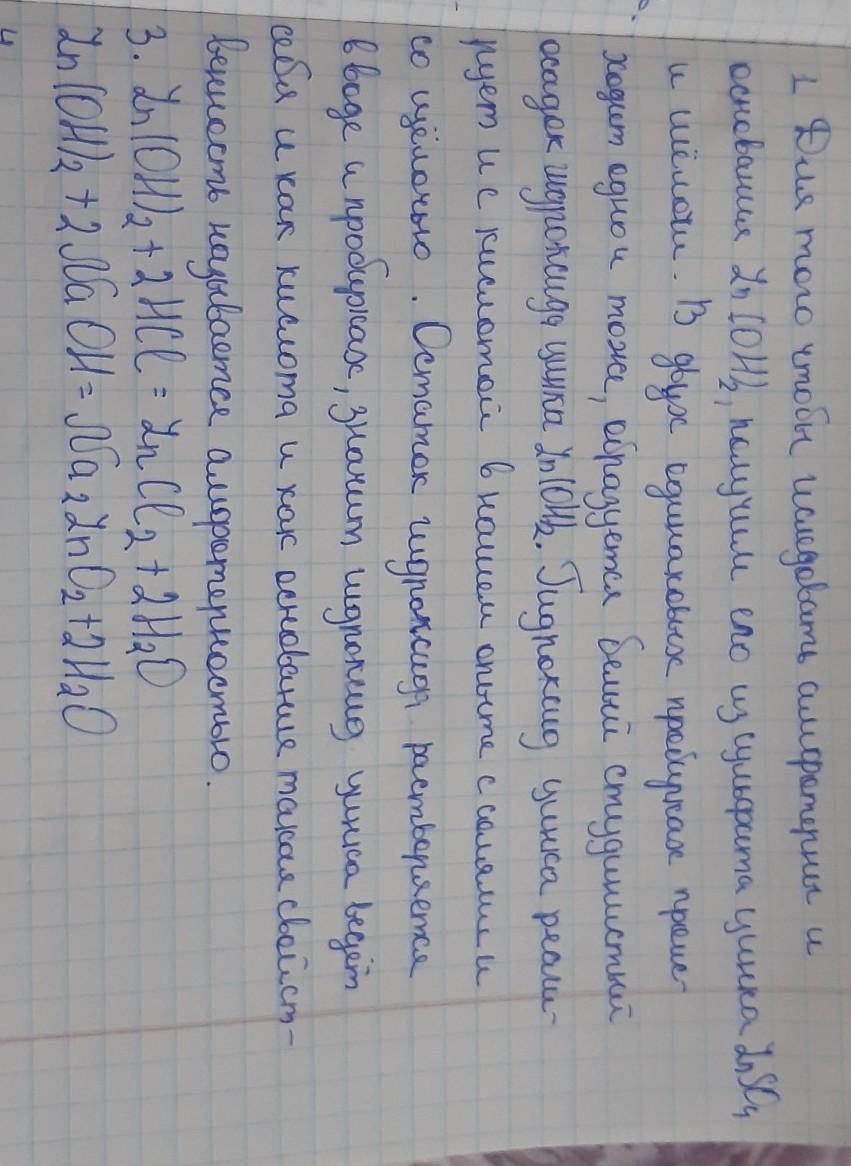 1 Для того чтобы иследовать амфотерны и
основания Zn(OH)2, получим его из сульфата цинка ZnSO4
и щёлочи. В двух одинаковых пробирках проис-
ходит одно и тоже, образуется белый студинистый
осадок гидроксида цинка Zn(OH)2. Гидроксид цинка реаги-
рует и с кислотой в нашем опыте с солями и
со щёлочью. Остаток гидроксида растворяется
в воде и пробирках, значит гидроксид цинка ведёт
себя и как кислота и как основание такая свойст-
венность называется амфотерностью.
3. Zn(OH)2 + 2HCl = ZnCl2 + 2H2O
Zn(OH)2 + 2NaOH = Na2ZnO2 + 2H2O
4